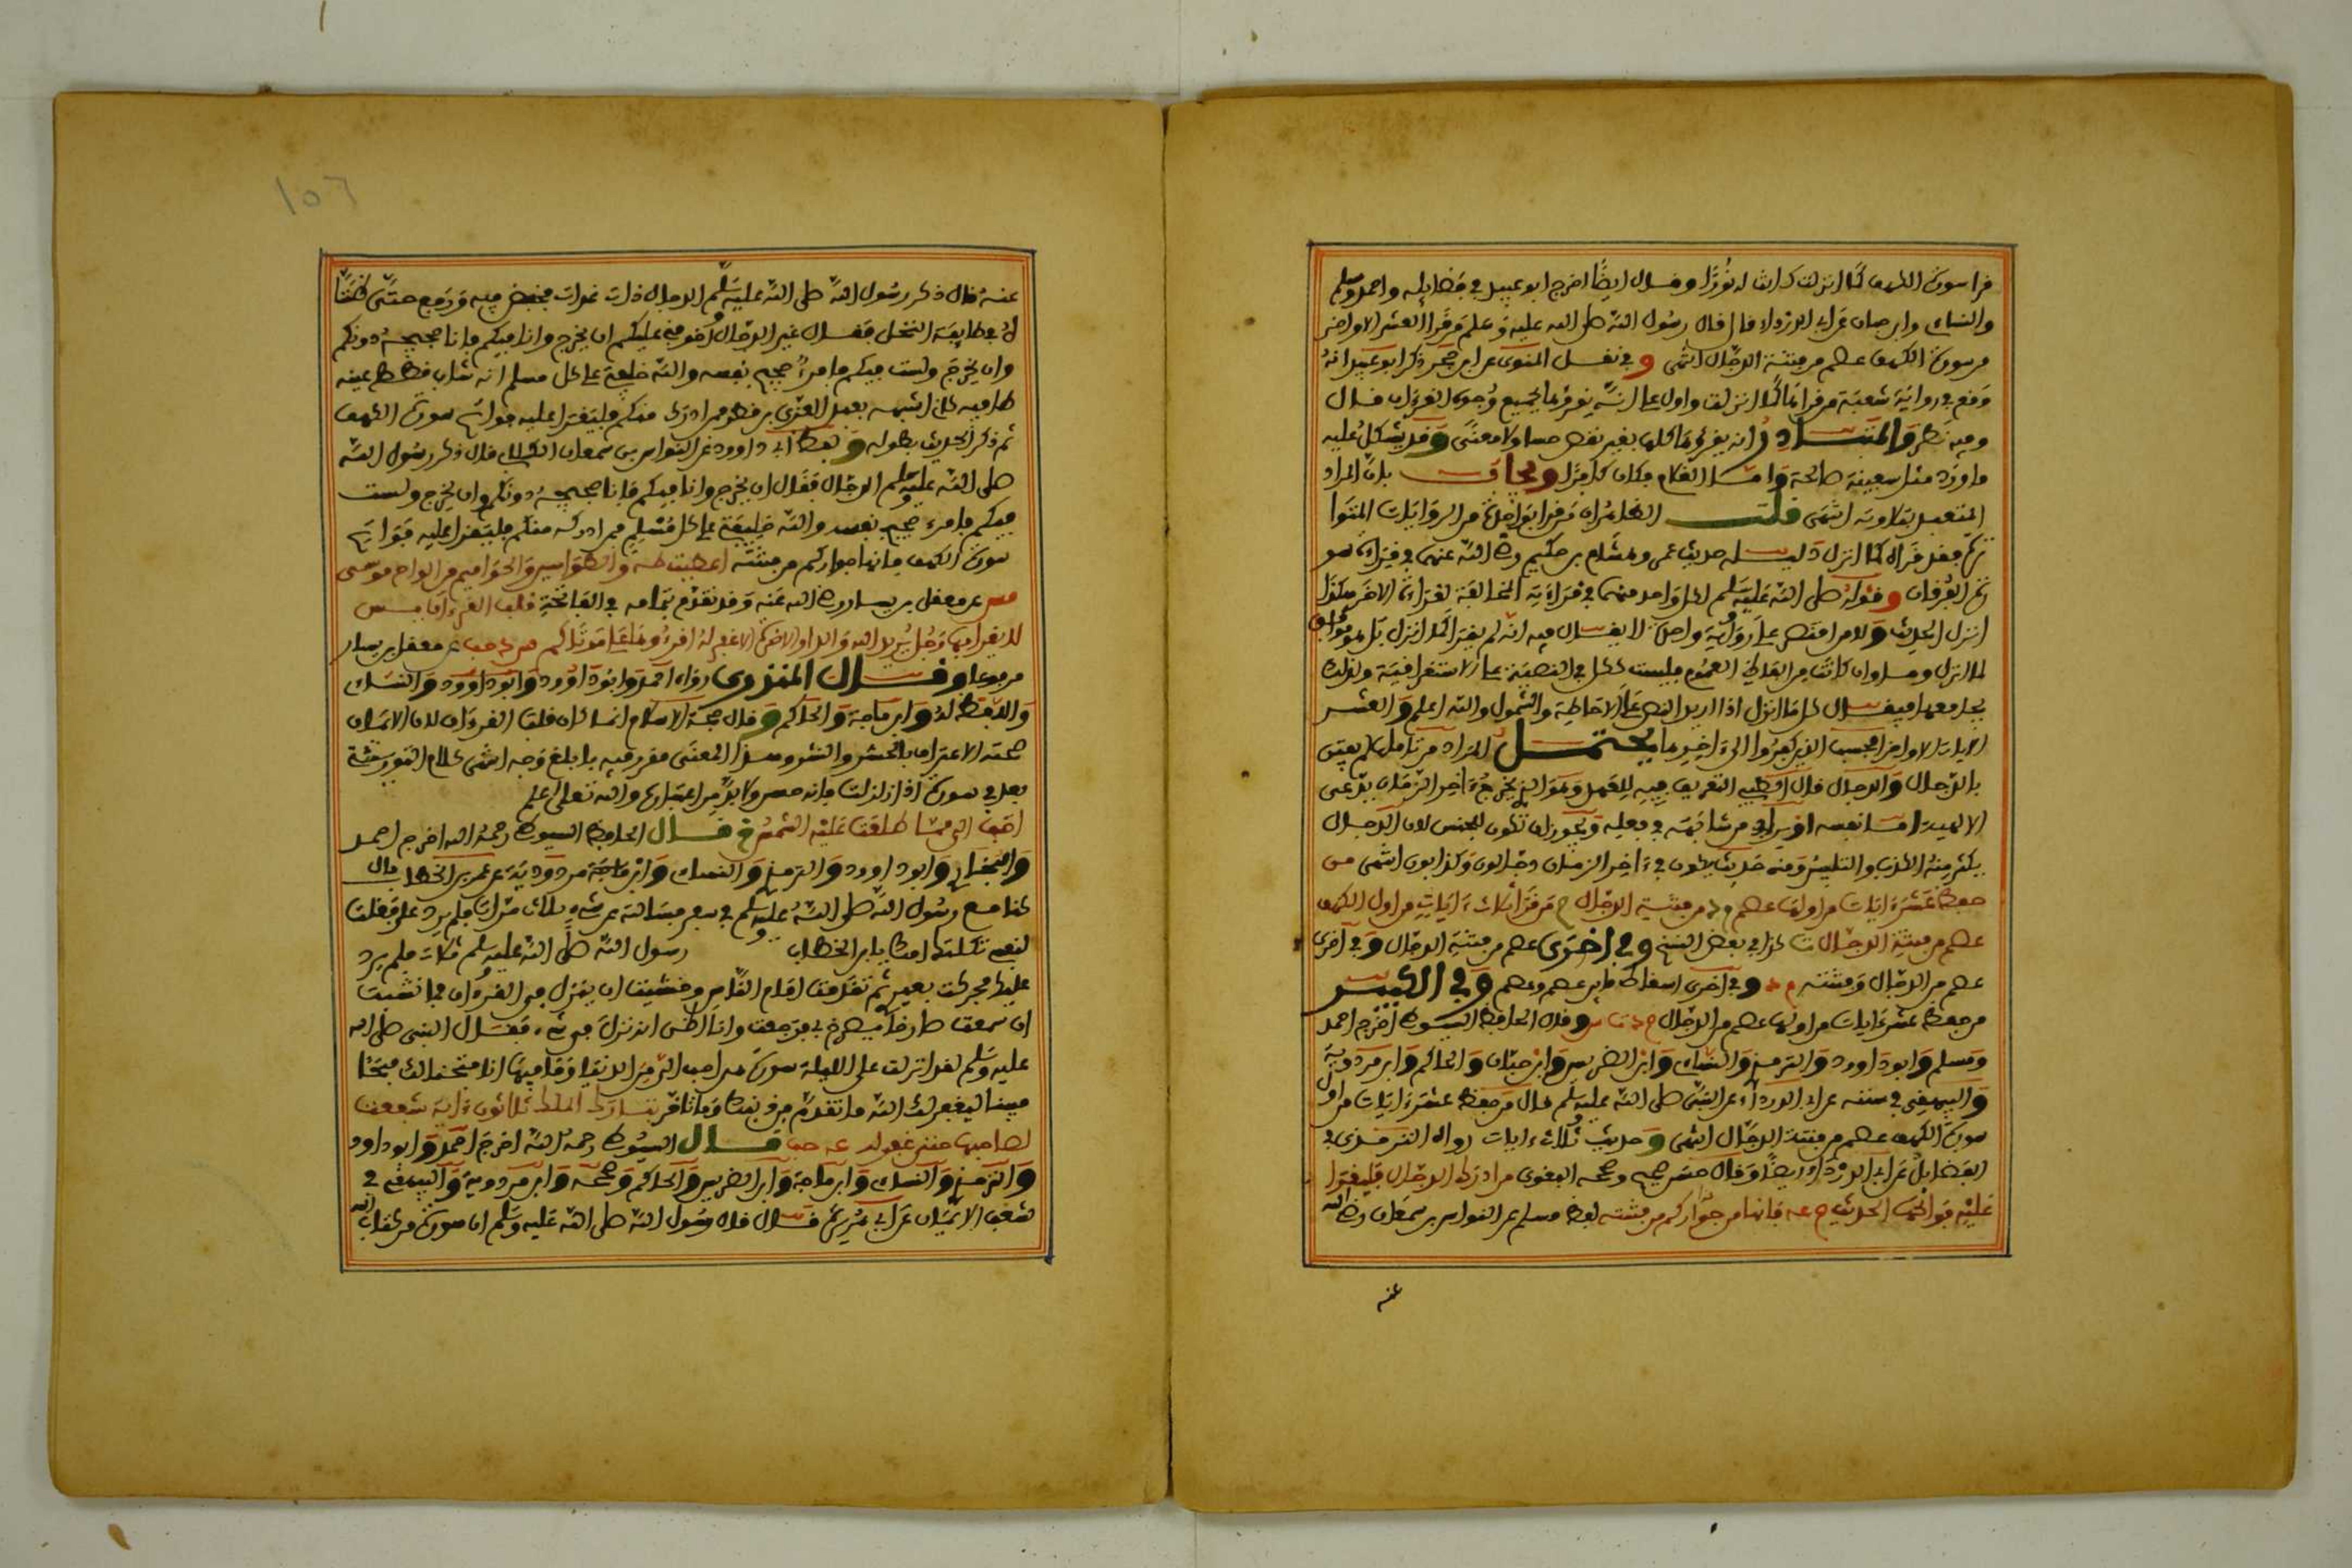 قرأ سورة الكهف كما أنزلت كانت له نورًا وقال أيضًا أخرج أبو عبيد في فضائله وأحمد ومسلم
والنساي وابن حبان عن أبي الدرداء قال قال رسول الله صلى الله عليه وسلم من قرأ العشر الأواخر
من سورة الكهف عصم من فتنة الدجال انتهى وفي نقل المنوي عن ابن حجر ذكر أبو عبيد أنه
وقع في رواية شعبة من قرأها كما أنزلت وأوله على أنه يقرؤها بجميع وجوه القرءان قال
وفيه نظر والمتبادر أنه يقرؤها كلها بغير نقص حسا ولا معنى وقد يشكل عليه
ما ورد من
المتعبد بتلاوته انتهى قلت الظاهر أن من قرأ بواحدة من الروايات المتوا
ترة فقد قرأه كما أنزل دليله حديث عمر وهشام بن حكيم رضي الله عنهما في قراءة سو
رة الفرقان وقوله صلى الله عليه وسلم لكل واحد منهما في قراءته المخالفة لقراءة الآخر هكذا
أنزل الحديث ولا من اقتصر على رواية واحدة لا يقال فيه أنه لم يقرأ كما أنزل بل هو موافق
لما أنزل
يجامعها فيقال كل ما أنزل إذا أريد النص على الإحاطة والشمول والله أعلم والعشر
الآيات الأواخر أفحسب الذين كفروا إلى ءاخرها يحتمل المراد من تأملها لم يفتن
بالدجال والدجال قال الطيبي التعريف فيه للعهد وهو الذي يخرج في ءاخر الزمان يدعي
الإلهية
يكثر منه الكذب والتلبيس ومنه حديث يكون في ءاخر الزمان دجالون وكذابون انتهى من
حفظ عشر ءايات من أولها عصم م د من فتنة الدجال م من قرأ ثلاث ءايات من أول الكهف
عصم من فتنة الدجال ت كذا في بعض النسخ وفي أخرى عصم من فتنة الدجال وفي أخرى
عصم من الدجال وفتنته م د وفي أخرى إسقاط ما بين عصم وعصم وفي الكبير
من حفظ عشر ءايات من أولها عصم من الدجال وقال الحافظ السيوطي أخرج أحمد
ومسلم وأبو داوود والترمذي والنساي وابن الضريس وابن حبان والحاكم وابن مردوية
والبيهقي في سننه عن أبي الدرداء عن النبي صلى الله عليه وسلم قال من حفظ عشر ءايات من أول
سورة الكهف عصم من فتنة الدجال انتهى وحديث ثلاث ءايات رواه الترمذي في
الفضائل عن أبي الدرداء أيضًا وقال حسن صحيح وصححه البغوي من أدرك الدجال فليقرأ
عليه فواتحها الحديث م عه فإنها من جواركم من فتنته لفظ مسلم عن النواس بن سمعان رضي الله
عنه
١٥٦
عنه قال ذكر رسول الله صلى الله عليه وسلم الدجال ذات غدات فخفض فيه ورفع حتى ظننا
ه في طائفة النخل فقال غير الدجال أخوفني عليكم إن يخرج وأنا فيكم فأنا حجيجه دونكم
وإن يخرج ولست فيكم فامرؤ حجيج نفسه والله خليفتي على كل مسلم إنه شاب قطط عينه
طافية كأني أشبهه بعبد العزى بن قطن فمن أدركه منكم فليقرأ عليه فواتح سورة الكهف
ثم ذكر الحديث بطوله ولفظ أبي داوود عن النواس بن سمعان الكلابي قال ذكر رسول الله
صلى الله عليه وسلم الدجال فقال إن يخرج وأنا فيكم فأنا حجيجه دونكم وإن يخرج ولست
فيكم فامرء حجيج نفسه والله خليفتي على كل مسلم فمن أدركه منكم فليقرأ عليه فواتح
سورة الكهف فإنها جواركم من فتنته أعطيت طه والطواسين والحواميم من ألواح موسى
مس عن معقل بن يسار رضي الله عنه وقد تقدم تمامه في الفاتحة قلب القرءان يس
لا يقرأها رجل يريد الله والدار الآخرة إلا غفر له اقرءوها على موتاكم س د ق حب عن معقل بن يسار
مرفوعا وقال المنذري رواه أحمد وأبو داوود والنساي
واللفظ له وابن ماجة والحاكم وقال حجة الإسلام إنما كان قلب القرءان لأن الإيمان
صحته الاعتراف بالحشر والنشر وهذا المعنى مقرر فيه بأبلغ وجه انتهى كلام التوربشتي
بعد في سورة إذا زلزلت فإنه حسن ولا بد من اعتباره والله تعالى أعلم
أحب إلي مما طلعت عليه الشمس خ قال الحافظ السيوطي رحمه الله أخرج أحمد
والبخاري وأبو داوود والترمذي والنساي وابن ماجة ومردوية عن عمر بن الخطاب قال
كنا مع رسول الله صلى الله عليه وسلم في سفر فسألته عن شيء ثلاث مرات فلم يرد علي فقلت
لنفسي ثكلتك أمك يا ابن الخطاب رسول الله صلى الله عليه وسلم ثلاث فلم يرد
عليك فحركت بعيري ثم تقدمت أمام الناس وخشيت أن ينزل في القرءان فما نشبت
أن سمعت صارخا يصرخ بي فرجعت وأنا أظن أنه نزل في شيء فقال النبي صلى الله
عليه وسلم لقد أنزلت علي الليلة سورة هي أحب إلي من الدنيا وما فيها إنا فتحنا لك فتحا
مبينا ليغفر لك الله ما تقدم من ذنبك وما تأخر تبارك الملك ثلاثون ءاية شفعت
لصاحبها حتى غفر له عه حب قال السيوطي رحمه الله أخرج أحمد وأبو داوود
والترمذي والنساي وابن ماجة وابن الضريس والحاكم وصححه وابن مردوية والبيهقي في
شعب الإيمان عن أبي هريرة قال قال رسول الله صلى الله عليه وسلم إن سورة من كتاب الله